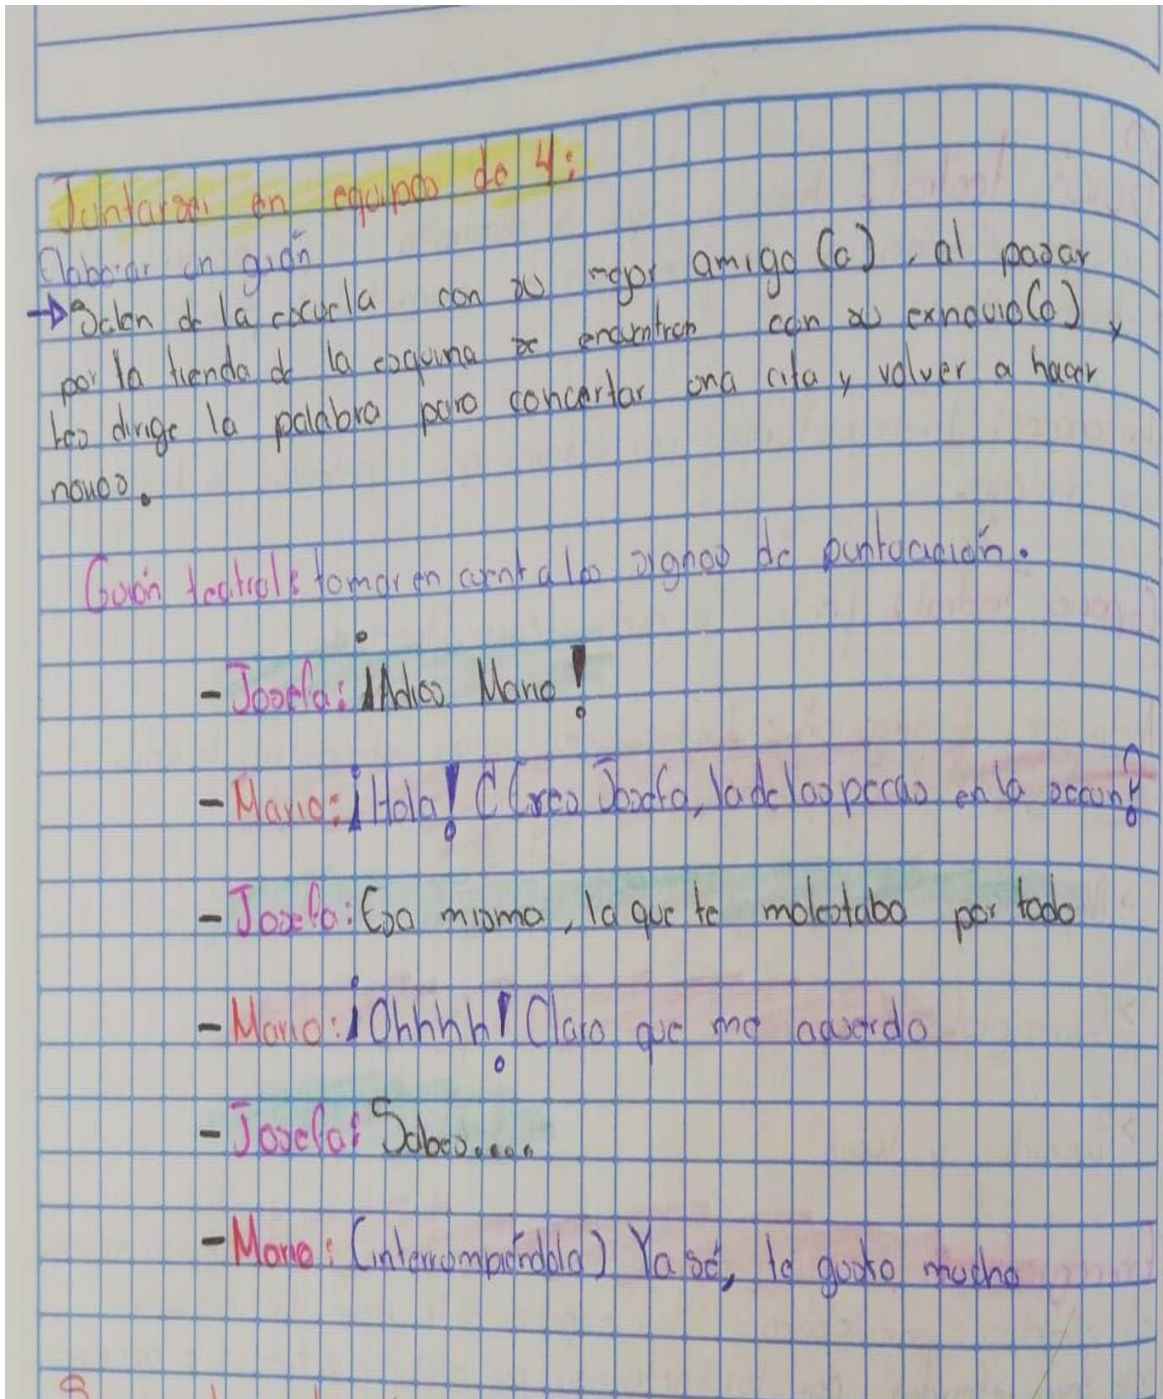 Juntarse en equipos de 4:
Elaborar un guión
→ Salen de la escuela con su mejor amigo (a), al pasar
por la tienda de la esquina se encuentran con su exnovio(a) y
les dirige la palabra para concertar una cita y volver a hacer
novios.
Guión teatral: tomar en cuenta los signos de puntuación.
- Josefa: ¡Adios Mario!
- Mario: ¡Hola! ¿Eres Josefa, la de las pecas en la
- Josefa: Esa misma, la que te molestaba por todo
- Mario: ¡Ohhhh! Claro que me acuerdo
- Josefa: Sabes.....
- Mario: (interrompiéndola) Ya sé, te gusto mucho